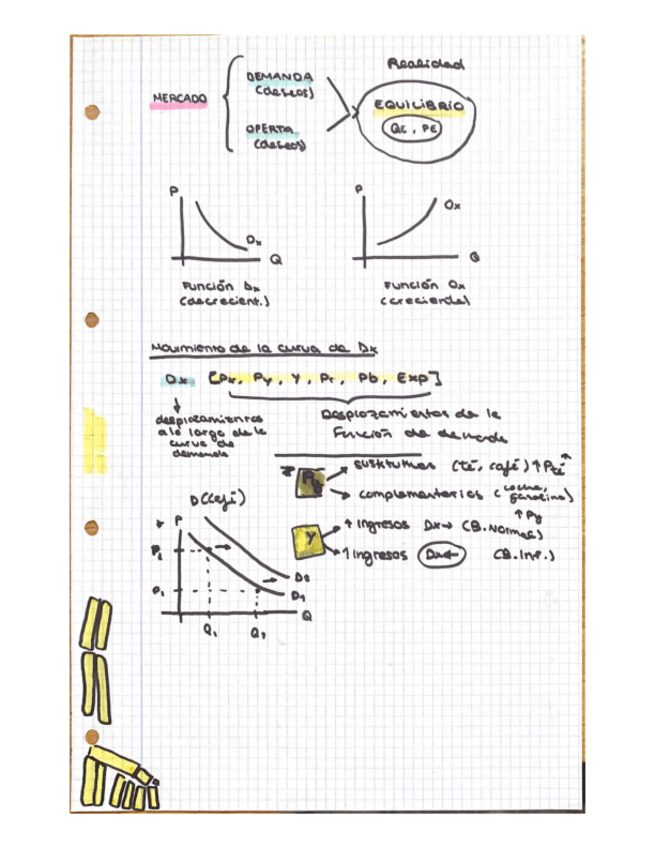 Realidad
MERCADO
DEMANDA
(deseos)
OFERTA
(deseos)
EQUILIBRIO
QE, PE
P
Dx
Q
P
Ox
Q
Función Dx
(decrecient.)
Función Ox
(creciente)
Movimiento de la curva de Dx
Dx [Px, Py, Y, Pr, Pb, Exp]
desplazamientos
a lo largo de la
curva de
demanda
Desplazamientos de la
Función de demanda
sustitutivos (té, café) ↑Pté ↑
complementarios (coche,
gasolina)
↑Py
Y
↑ Ingresos Dx→ (B.Normal)
↑ Ingresos Dx← (B.Inf.)
D(café)
P
P2
P1
D2
D1
Q
Q1
Q2